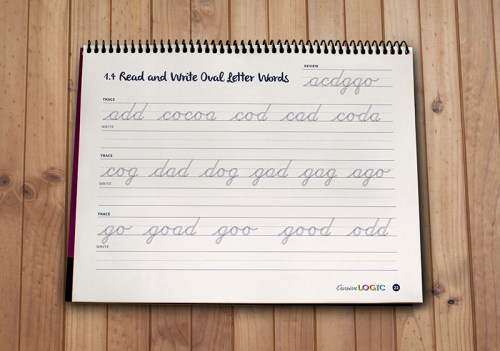 1.4 Read and Write Oval Letter Words
REVIEW
acdggo
TRACE
add cocoa cod cad coda
WRITE
TRACE
cog dad dog gad gag ago
WRITE
TRACE
go goad goo good odd
WRITE
Cursive LOGIC